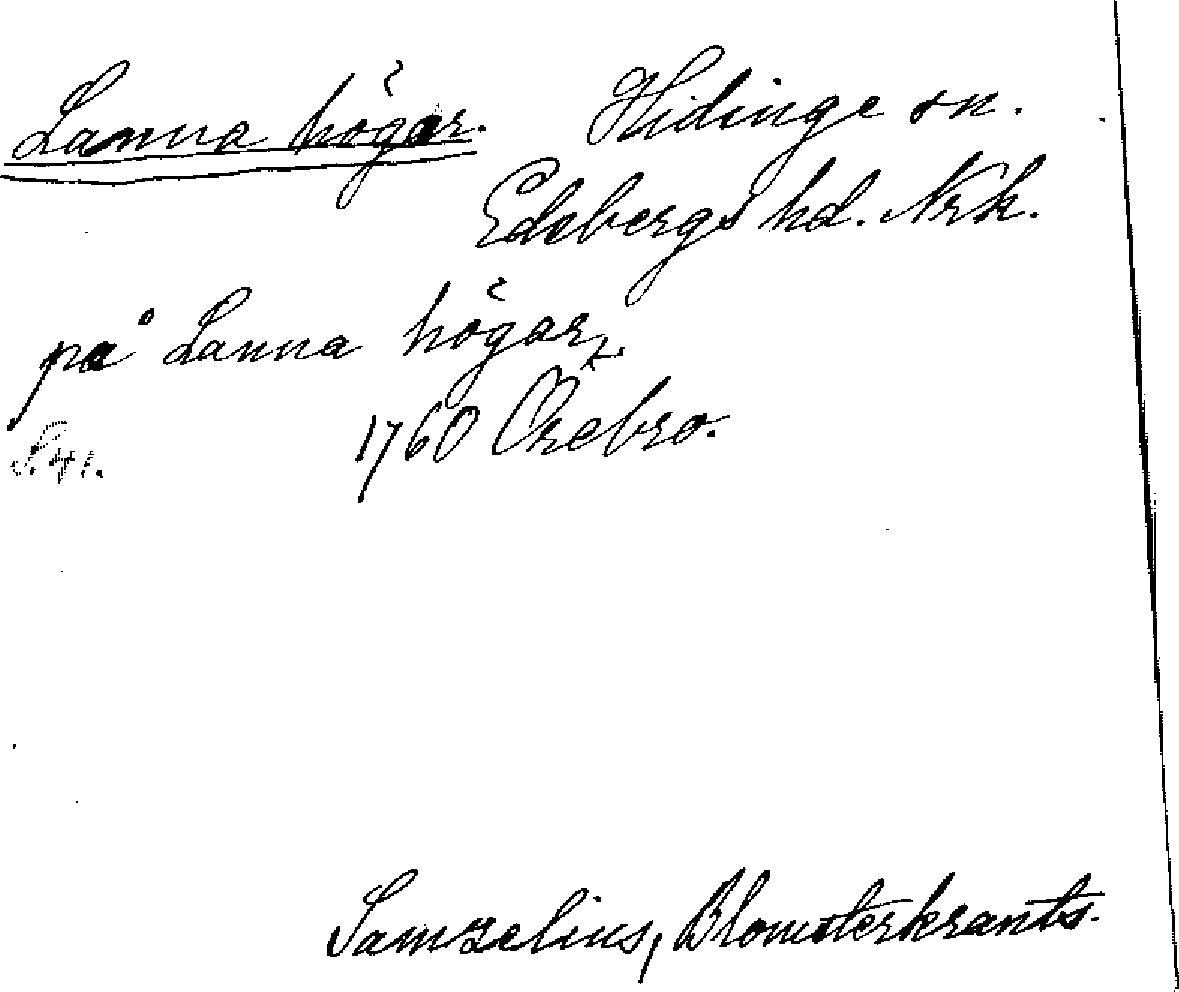 Lanna högar. Hidinge sn.
Edsbergs hd. Nrk.
på Lanna högar
1760 Örebro.
S. 41.
Samzelius, Blomsterkrants.